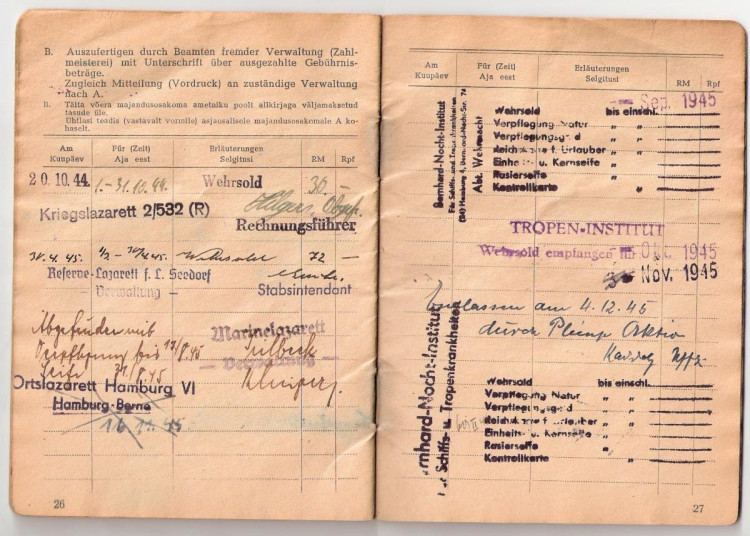 B. Auszufertigen durch Beamten fremder Verwaltung (Zahl-
meisterei) mit Unterschrift über ausgezahlte Gebührnis-
beträge.
Zugleich Mitteilung (Vordruck) an zuständige Verwaltung
nach A.
B. Täita võera majandusosakoma ametniku poolt allkirjaga väljamaksetud
tasude üle.
Ühtlasi teadis (vastavalt vormile) asjaosalisele majandusosakomale A ko-
haselt.
Am Für (Zeit) Erläuterungen
Kuupäev Aja eest Selgitusi RM Rpf
20.10.44 1.-31.10.44. Wehrsold 30.-
Kriegslazarett 2/532 (R)
Rechnungsführer
30.4.45. 1/2 - 30/4.45. Wehrsold 72 -
Reserve-Lazarett f. L. Seedorf
- Verwaltung - Stabsintendant
Abgefunden mit Marinelazarett
Verpflegung bis
- Verwaltung -
Ortslazarett Hamburg VI
Hamburg-Berne
26
Am Für (Zeit) Erläuterungen
Kuupäev Aja eest Selgitusi RM Rpf
Bernhard-Nocht-Institut
Für Schiffs- und Tropenkrankheiten
(24) Hamburg 4, Bernhard-Nocht-Str. 74
Abt. Wehrmacht
Sep. 1945
Wehrsold bis einschl.
Verpflegung Natur " "
Verpflegungsgeld " "
Reichskarte f. Urlauber " "
Einheits- u. Kernseife " "
Rasierseife " "
Kontrollkarte " "
TROPEN-INSTITUT
Wehrsold empfangen für Okt. 1945
Nov. 1945
Entlassen am 4.12.45
durch Plünp Aktio
Bernhard-Nocht-Institut
für Schiffs- u. Tropenkrankheiten
Wehrsold bis einschl.
Verpflegung Natur " "
Verpflegungsgeld " "
Reichskarte f. Urlauber " "
Einheits- u. Kernseife " "
Rasierseife " "
Kontrollkarte " "
27